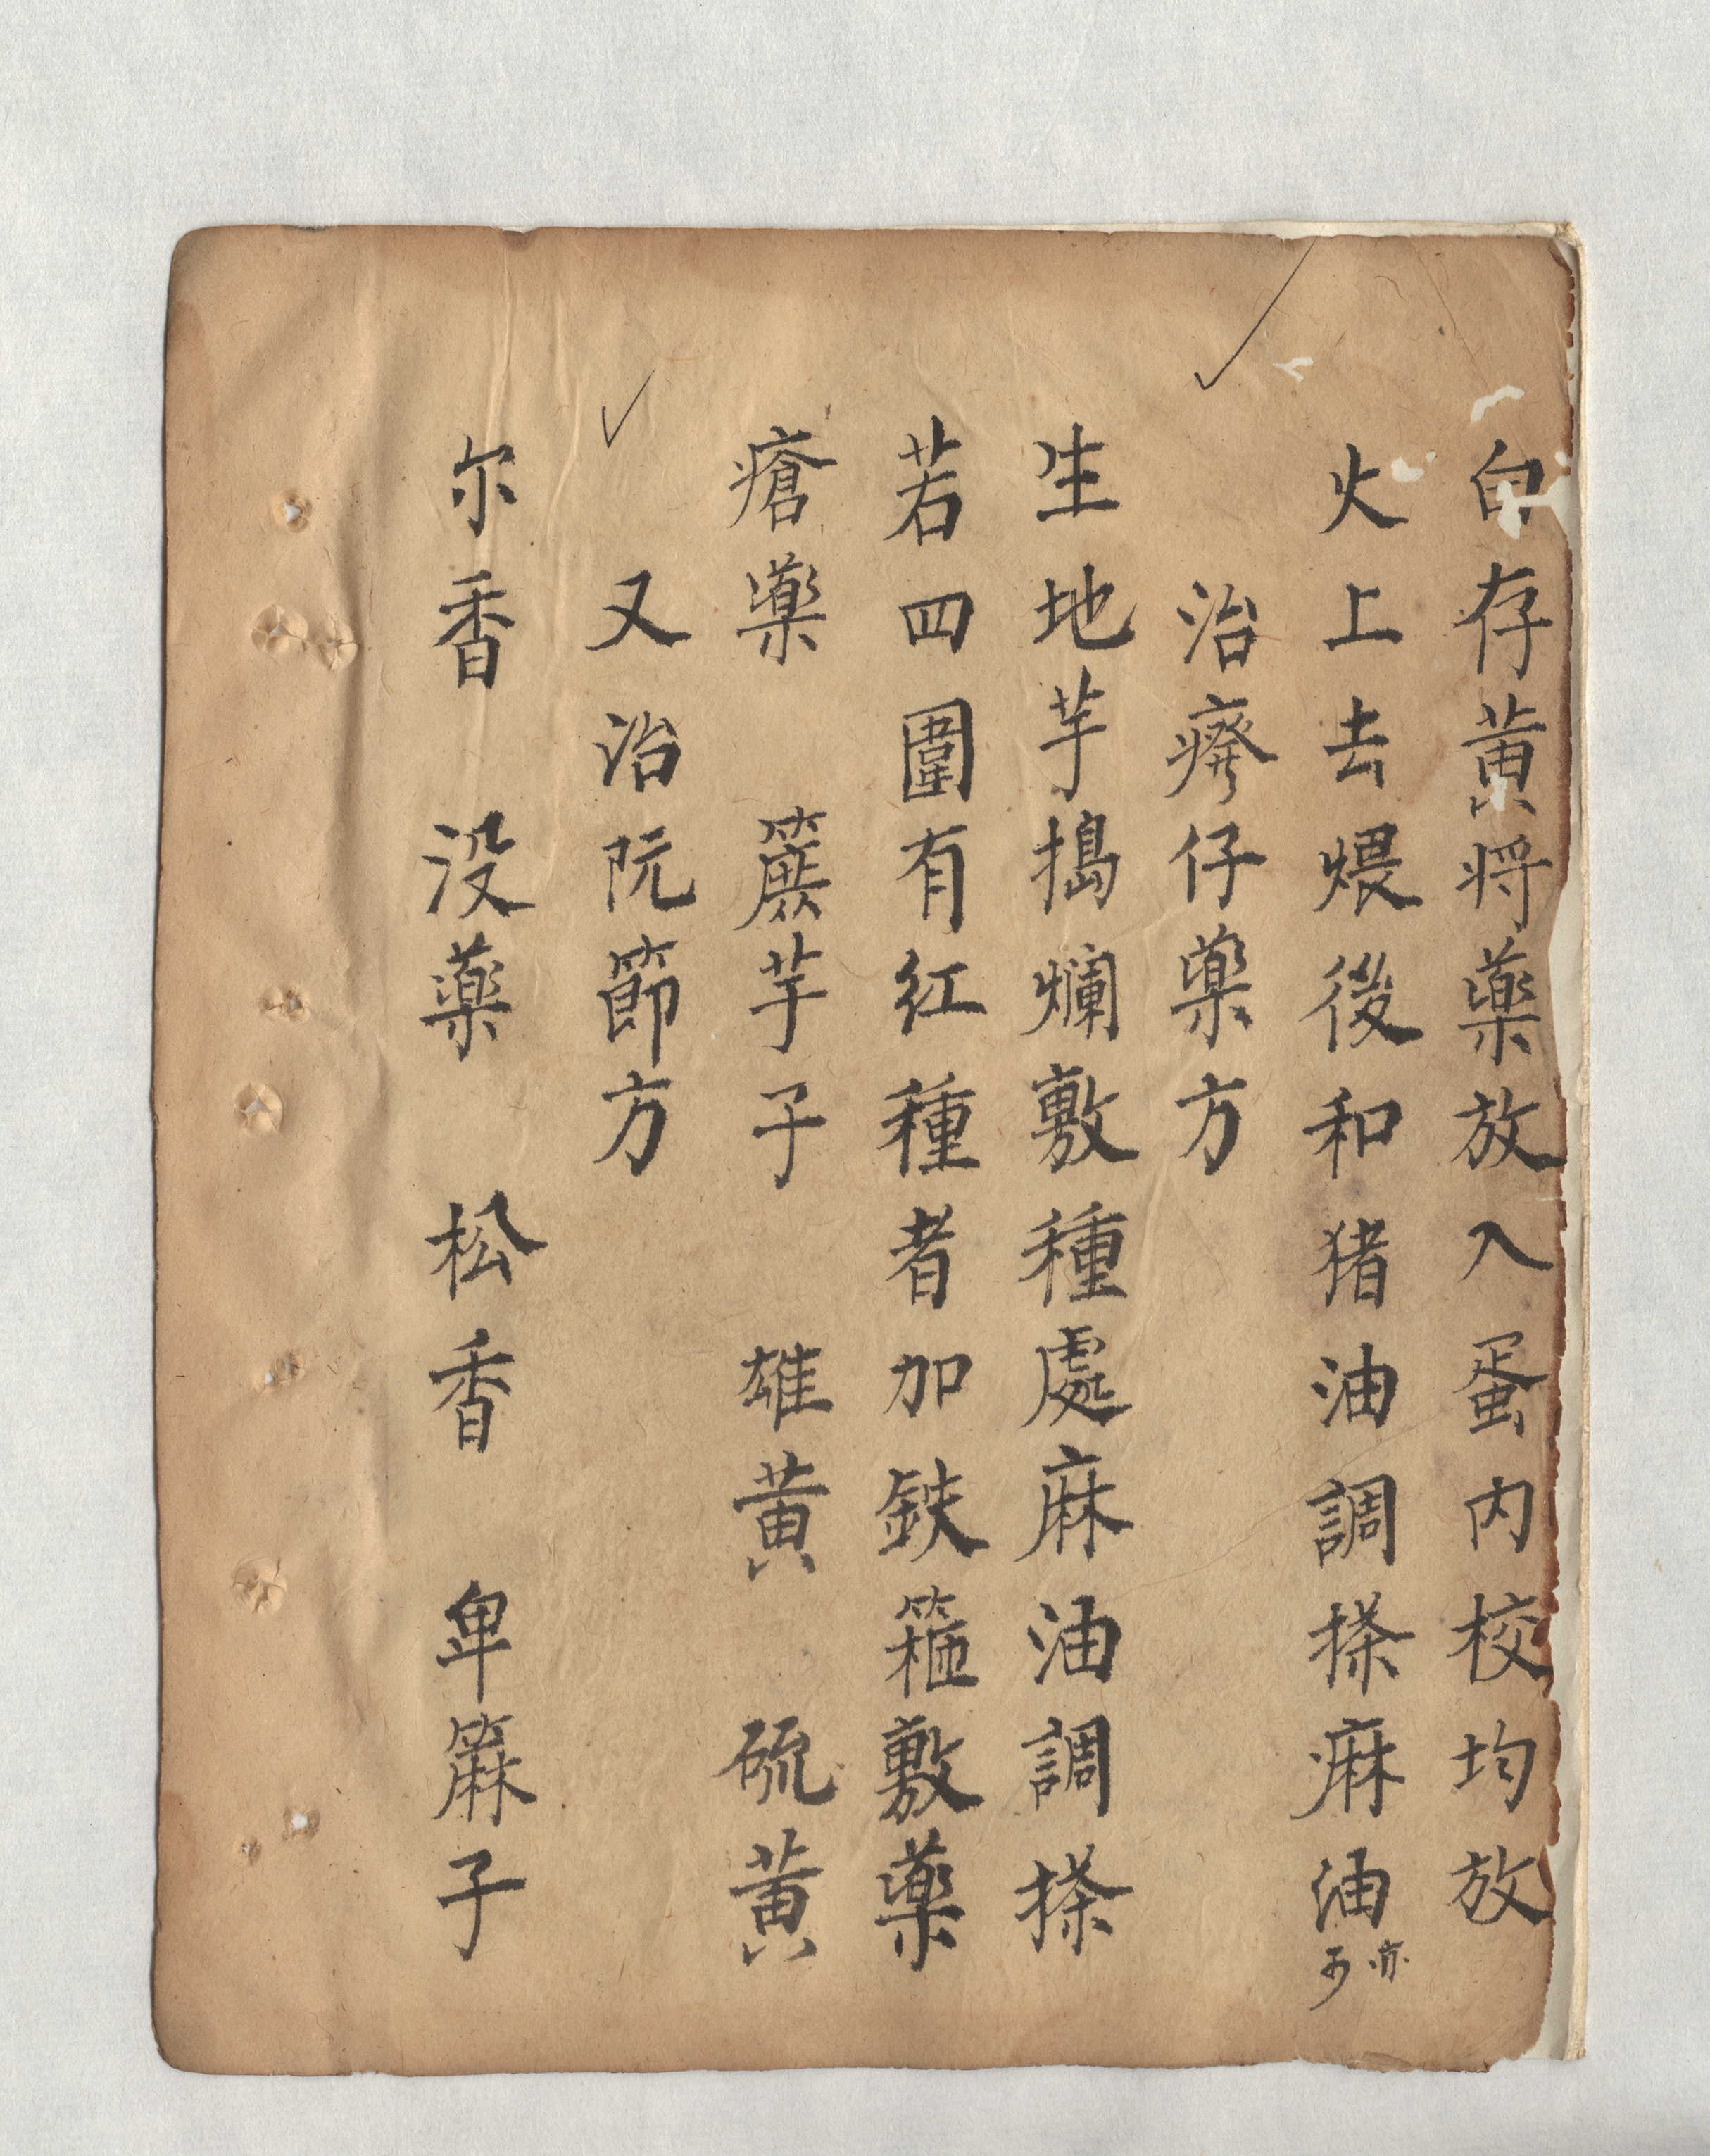 白存黄将藥放入蛋内校均放
火上去煨後和猪油調搽麻油亦可
治癆仔藥方
生地芋搗爛敷種處麻油調搽
若四圍有紅種者加鉄箍敷藥
瘡藥 芋子 雄黄 硫黄
又治阮節方
尔香 没藥 松香 卑蔴子